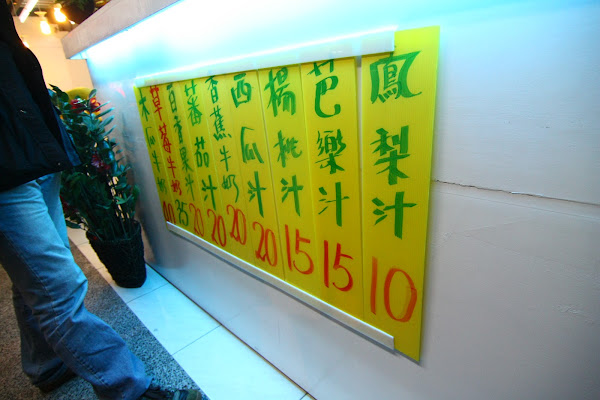 鳳梨汁 10
芭樂汁 15
楊桃汁 15
西瓜汁 20
香蕉牛奶 20
蕃茄汁 20
百香果汁 20
草莓牛奶 35
木瓜牛奶